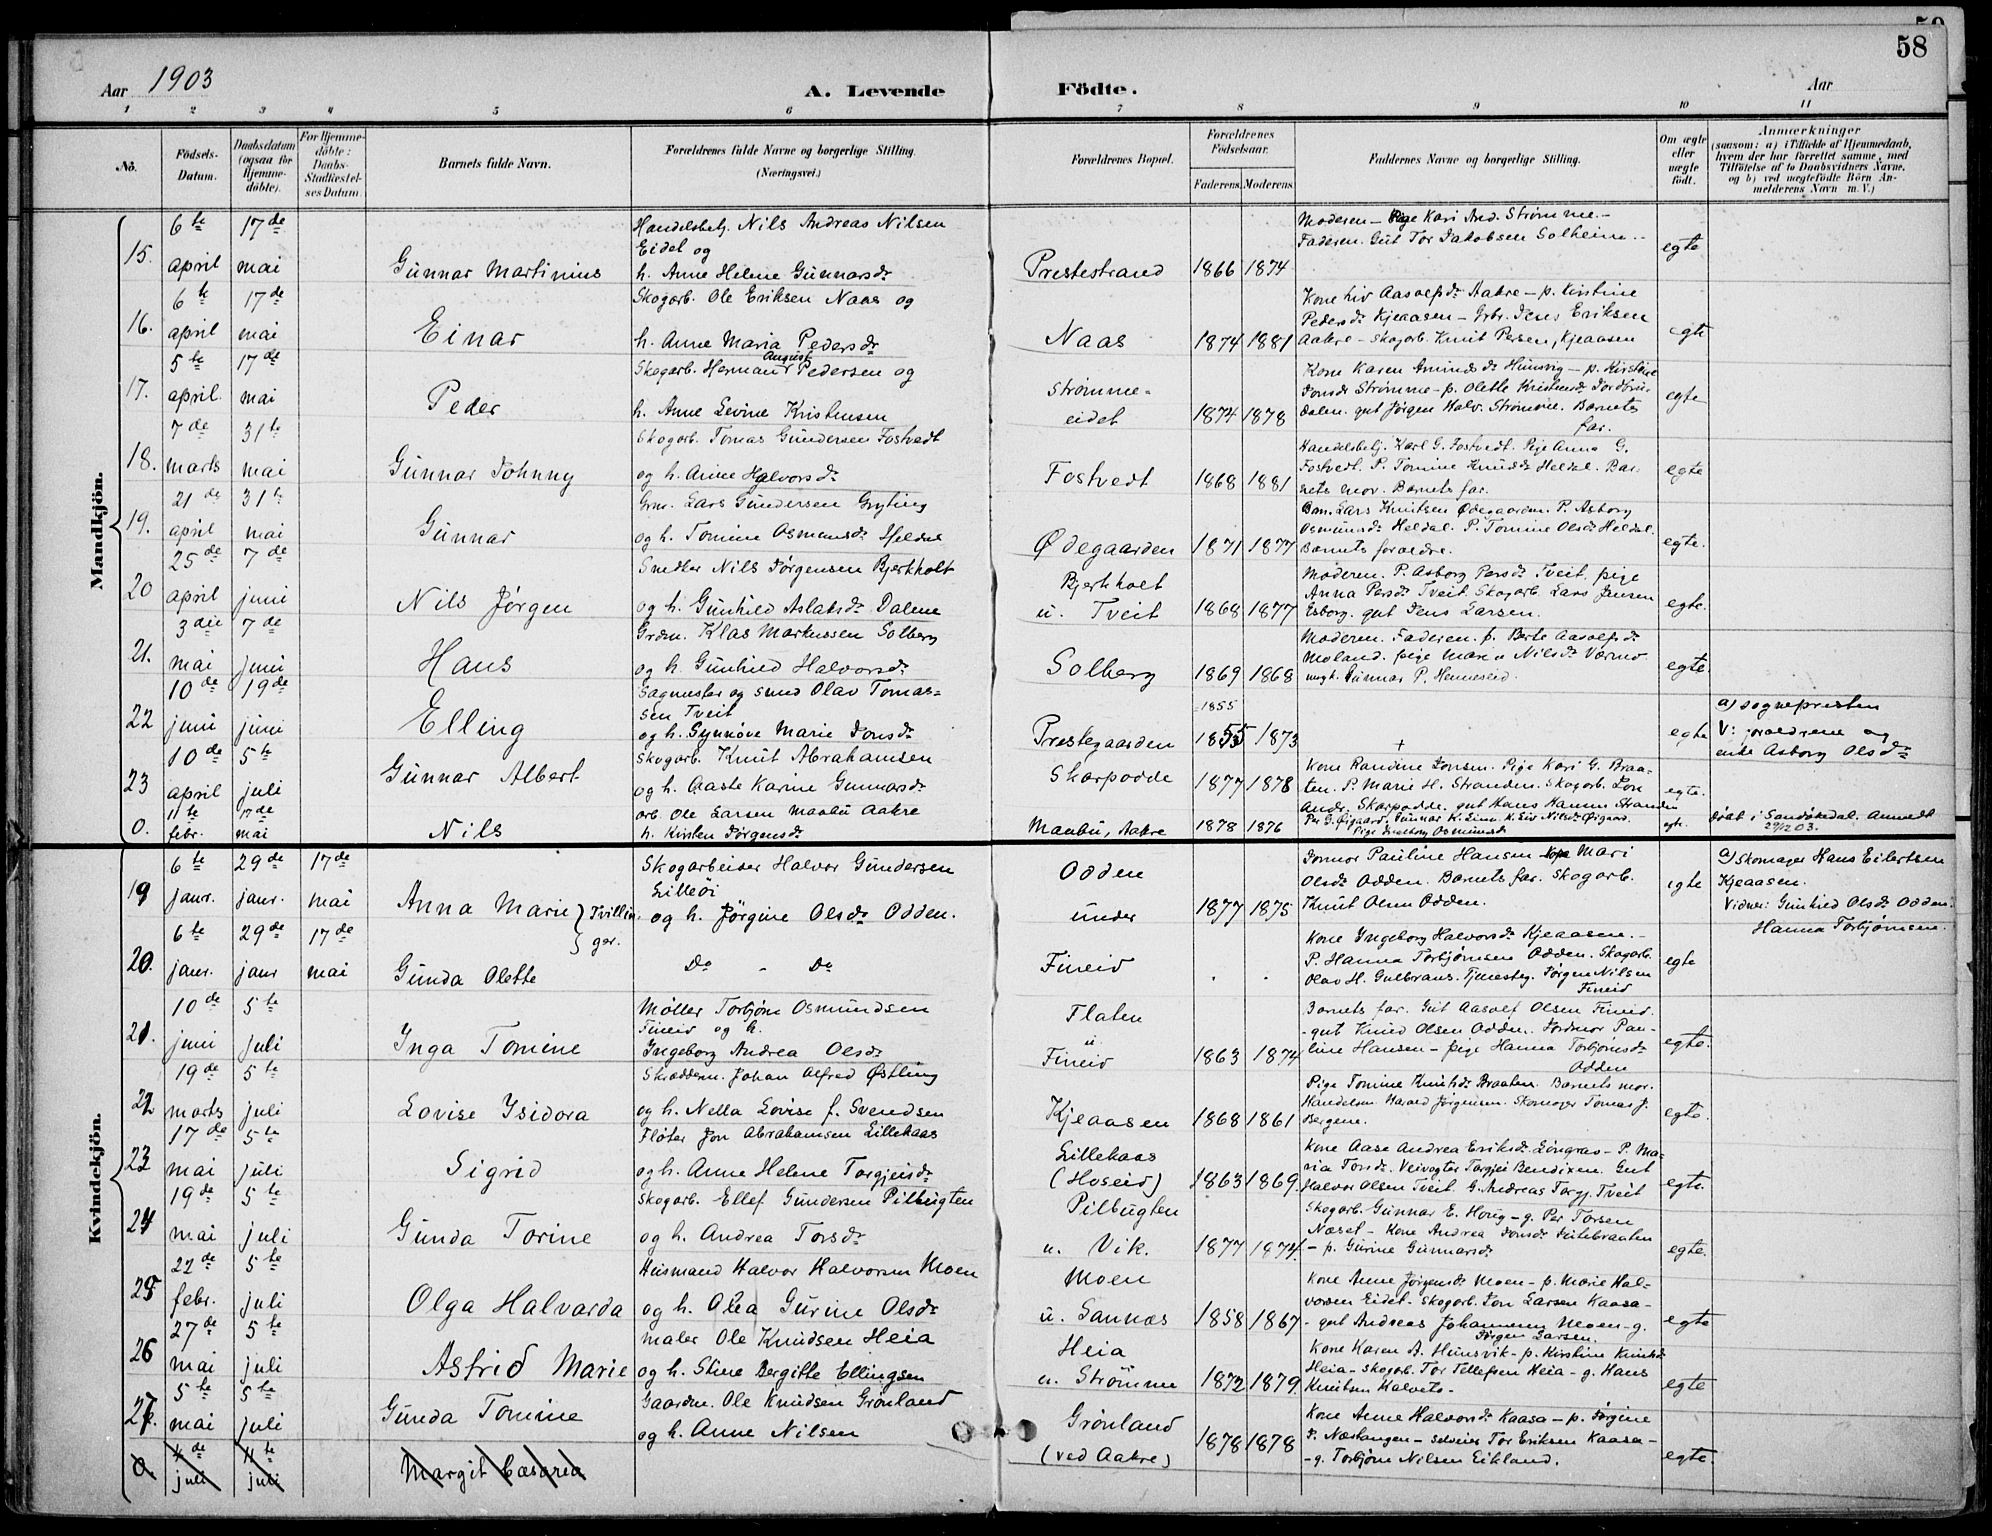 58
Aar 1903
A. Levende
Födte.
Aar
1 2 3 4 5 6 7 8 9 10 11
No.
Födsels-Datum.
Daabsdatum (ogsaa för Hjemmedöbte).
For Hjemmedöbte: Daabs-Stadfæstelses Datum.
Barnets fulde Navn.
Forældrenes fulde Navne og borgerlige Stilling.
(Næringsvei.)
Forældrenes Bopæl.
Forældrenes Födselsaar.
Faderens. Moderens.
Faddernes Navne og borgerlige Stilling.
Om ægte eller uægte födt.
Anmærkninger
(saasom: a) i Tilfælde af Hjemmedaab, hvem der har forrettet samme, med Tilföielse af to Daabsvidners Navne, og b) ved uægtefödte Börn Anmelderens Navn m. V.)
Mandkjön.
15. 6te april 17de mai Gunnar Martinius
Handelsbetj. Nils Andreas Nilsen
Eidet og
h. Anne Helene Gunnarsdr
Prestestrand 1866 1874
Moderen – Pige Kari And. Strømme. –
Faderen. Gut Tor Jakobsen Solheim. –
egte
16. 6te april 17de mai Einar
Skogarb. Ole Eriksen Naas og
h. Anne Maria Pedersdr
Naas 1874 1881
Kone Liv Aasolfsdr Aakre – p. Kirstine
Pedersdr Kjeaasen – Grbr. Jens Eriksen
Aakre – Skogarb. Knut Persen, Kjeaasen
egte
17. 5te april 17de mai Peder
Skogarb. Herman August Pedersen og
h. Anne Levine Kristensen
Strømme-
eidet 1874 1878
Kone Karen Amundsdr Hunsvig – p. Kirstine
Jonsdr Strømme – p. Olette Kristensdr
dalen. gut Jørgen Halv. Strømme. Barnets
far.
egte
18. 7de marts 31te mai Gunnar Johnny
Skogarb. Tomas Gundersen Fostvedt
og h. Anne Halvorsdr
Fostvedt 1868 1881
Handelsbetj. Karl G. Fostvedt. Pige Anna G.
Fostvedt. P. Tomine Knudsdr Heldal. Bar-
nets mor. Barnets far.
egte
19. 21de april 31te mai Gunnar
Grm. Lars Gundersen Gryting
og h. Tomine Osmundsdr Heldal
Ødegaarden 1871 1877
Lars Knutsen Ødegaarden. P. Asborg
Osmundsdr Heldal. P. Tomine Olsdr Heldal.
Barnets foraeldre.
egte.
20 25de april 7de juni Nils Jørgen
Snedker Nils Jørgensen Bjerkholt
og h. Gunhild Aslaksdr Dalene
Bjerkholt
u. Tveit 1868 1877
Moderen. P. Asborg Persdr Tveit, pige
Anna Persdr Tveit. Skogarb. Lars Jensen
Esborg. gut Jens Larsen.
egte.
21. 3die mai 7de juni Hans
Grdm. Klas Markussen Solberg
og h. Gunhild Halvorsdr
Solberg 1869 1868
Moderen. Faderen. p. Berte Aasolfsdr
Moland. pige Maria Nilsdr Værmo
ungk. Gunnar P. Henneseid.
egte.
22 10de juni 19de juni Elling
Sagmester og smed Olav Tomas-
sen Tveit
og h. Synnöve Marie Jonsdr
Prestegaarden 1855 1855 1873
+
egte
a) sognepresten
V: foraeldrene og
enke Asborg Olsdr
23 10de april 5te juli Gunnar Albert
Skogarb. Knut Abrahamsen
og h. Aaste Karine Gunnarsdr
Skarpodde 1877 1878
Kone Randine Jonsen. Pige Kari G. Braa-
ten. P. Marie H. Stranden. Skogarb. Jon
Andr. Skarpodde. gut Hans Hansen Stranden
egte.
0. 11te febr. 17de mai Nils
arb. Ole Larsen Maabu Aakre
h. Kirsten Jørgensdr
Maabu, Aakre 1878 1876
Per G. Øigaard, Gunnar K. Liv Nilsdr Øigaard.
Pige Ingeborg Osmundsdr
egt.
døbt i Sandøkedal. Anmeldt
29/12 03.
Kvindekjön.
19 6te janr. 29de janr. 17de mai Anna Marie } Tvillin-
ger.
Skogarbeider Halvor Gundersen
Lilleöi
og h. Jørgine Olsdr Odden.
Odden
under 1877 1875
Jonmor Pauline Hansen Kone Mari
Olsdr Odden. Barnets far. Skogarb.
Knut Olsen Odden.
egte
a) Skomager Hans Eilertsen
Kjeaasen.
Vidner: Gunhild Olsdr Odden.
Hanna Torbjørnsen.
20. 6te janr. 29de janr 17de mai Gunda Olette
Do - Do
Fineid . .
Kone Ingeborg Halvorsdr Kjeaasen. –
P. Hanna Torbjørnsen Odden. Skogarb.
Olav H. Gulbrans. Tjenestg. Jørgen Nilsen
Fineid
egte
21. 10de juni 5te juli Inga Tomine
Møller Torbjørn Osmundsen
Fineid og h.
Ingeborg Andrea Olsdr
Flaten
u
Fineid 1863 1874
Barnets far. Gut Aasolf Olsen Fineid.
- gut Knud Olsen Odden. Jordmor Pau-
line Hansen – pige Hanna Torbjørnsdr
Odden
egte.
22 19de marts 5te juli Lovise Ysidora
Skræddern. Johan Alfred Østling
og h. Nella Lovise f. Svendsen
Kjeaasen 1868 1861
Pige Tomine Knutsdr Braaten. Barnets mor.
Handelsm. Harald Jørgensen. Skomager Tomas J.
Bergene.
egte.
23 17de mai 5te juli Sigrid
Fløter Jon Abrahamsen Lillekaas
og h. Anne Helene Torgjeusdr
Lillekaas
(Hoseid) 1863 1869
Kone Aase Andrea Eriksdr Longraa – P. Ma-
ria Torsdr. Veivogter Torgjei Bendixen. Gut
Halvor Olsen Tveit. G. Andreas Torgj. Tveit
egte.
24 19de mai 5te juli Gunda Torine
Skogarb. Ellef Gundersen Pilbugten
og h. Andrea Torsdr
Pilbugten
u. Vik. 1877 1874
Skogarb. Gunnar E. Houg – g. Per Torsen
Næset – Kone Andrea Jonsdr
– p. Gurine Gunnarsdr
egte.
25 22de febr. 5te juli Olga Halvarda
Husmand Halvor Halvorsen Moen
og h. Alea Gurine Olsdr
Moen
u. Sannæs 1858 1867
Kone Anne Jørgensdr Moen – p. Marie Hal-
vorsen Eidet – Skogarb. Jon Larsen Kaasa –
- gut Andreas Johannsen Moen – g.
Jørgen Larsen.
egte
26 27de mai 5te juli Astrid Marie
maler Ole Knudsen Heia
og h. Stine Bergitte Ellingsen
Heia
u. Strömme 1872 1879
Kone Karen A. Hunsvik – p. Kirstine Knutsdr
Heia – skogarb. Tor Tellefsen Heia – g. Hans
Knutsen Halveto –
egte
27. 5te mai 5te juli Gunda Tomine
Gaardm. Ole Knudsen Grønland
og h. Anne Nilsen
Grønland
(ved Aakre) 1878 1878
Kone Anne Halvorsdr Kaasa – p. Jørgine
P. Næstangen – selveier Tor Eriksen Kaasa –
- g. Torbjørn Nilsen Eikland.
egte.
0. 4de juli 11te juli Margit Cæsarea